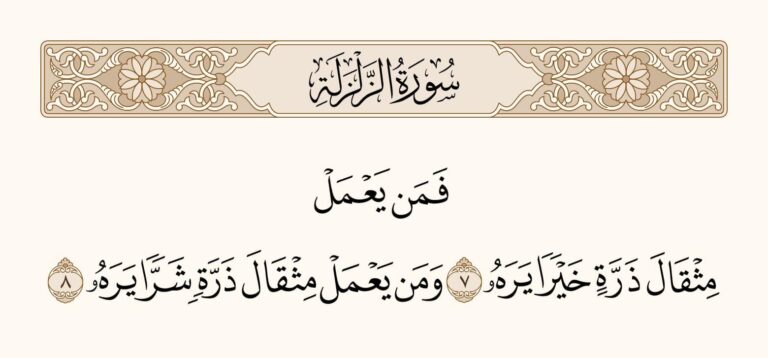 سُورَةُ الزَّلْزَلَةِ
فَمَن يَعْمَلْ
مِثْقَالَ ذَرَّةٍ خَيْرًا يَرَهُۥ ٧ وَمَن يَعْمَلْ مِثْقَالَ ذَرَّةٍ شَرًّا يَرَهُۥ ٨